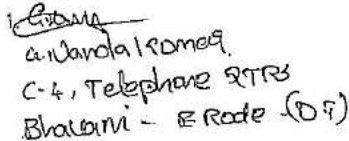 G. Nandakumar
C-4, Telephone QTRS
Bhavani - ERode (DT)